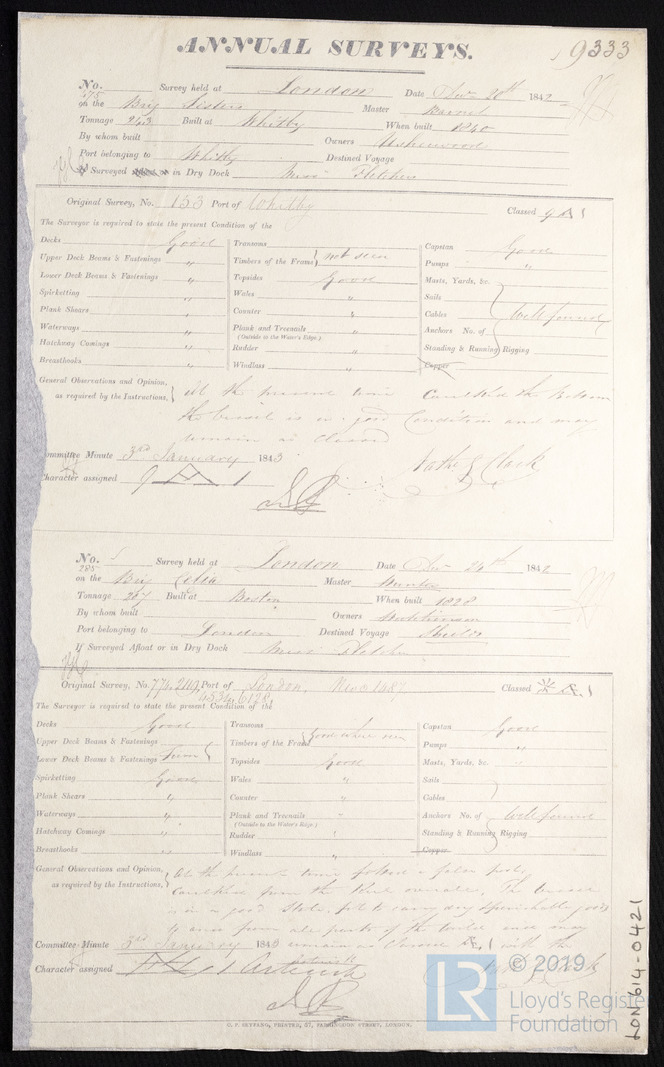 ANNUAL SURVEYS.
9333
No. Survey held at London Date 20th 1842
on the Brig Sisters Master
Tonnage 243 Built at Whitby When built 1840
By whom built Owners Usherwood
Port belonging to Whitby Destined Voyage
Surveyed in Dry Dock Fletchers
Original Survey, No. 153 Port of Whitby Classed 9 A 1
The Surveyor is required to state the present Condition of the
Decks Good
Upper Deck Beams & Fastenings "
Lower Deck Beams & Fastenings "
Spirketting "
Plank Shears "
Waterways "
Hatchway Comings "
Breasthooks "
Transoms
Timbers of the Frame not seen
Topsides Good
Wales "
Counter "
Plank and Treenails "
(Outside to the Water's Edge.)
Rudder "
Windlass "
Capstan Good
Pumps "
Masts, Yards, &c.
Sails
Cables Well found
Anchors No. of
Standing & Running Rigging
Copper
General Observations and Opinion, At the present time Caulked the Bottom
as required by the Instructions, the vessel is in good Condition and may
remain as Classed
Committee Minute 3rd January 1843
Character assigned 9 A 1
Clark
No. 285 Survey held at London Date 24th 1842
on the Brig Celia Master Hunter
Tonnage 207 Built at Boston When built 1828
By whom built Owners Hutchinson
Port belonging to London Destined Voyage
If Surveyed Afloat or in Dry Dock Fletcher
Original Survey, No. Port of London, Classed
The Surveyor is required to state the present Condition of the
Decks Good
Upper Deck Beams & Fastenings
Lower Deck Beams & Fastenings
Spirketting Good
Plank Shears "
Waterways "
Hatchway Comings "
Breasthooks "
Transoms
Timbers of the Frame Good where seen
Topsides Good
Wales "
Counter "
Plank and Treenails
(Outside to the Water's Edge.)
Rudder
Windlass "
Capstan Good
Pumps "
Masts, Yards, &c.
Sails
Cables
Anchors No. of Well found
Standing & Running Rigging
Copper
General Observations and Opinion, At the present time a false post,
as required by the Instructions, caulked from the The vessel
is in a good State, fit to carry dry & perishable goods
to and from all parts of the world and may
Committee Minute 3rd January 1843 remain as Classed with the
Character assigned
G. F. SEYFANG, PRINTED, 57, FARRINGDON STREET, LONDON.
LR © 2019
Lloyd's Register
Foundation
LON 614-0421